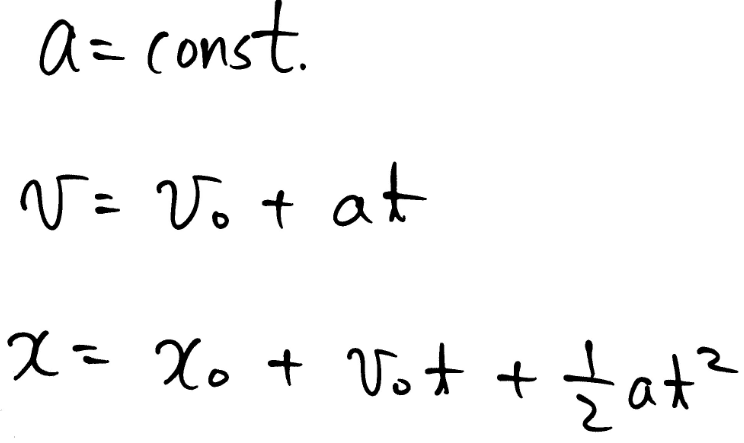 a = const.
v = v₀ + at
x = x₀ + v₀t + ½at²